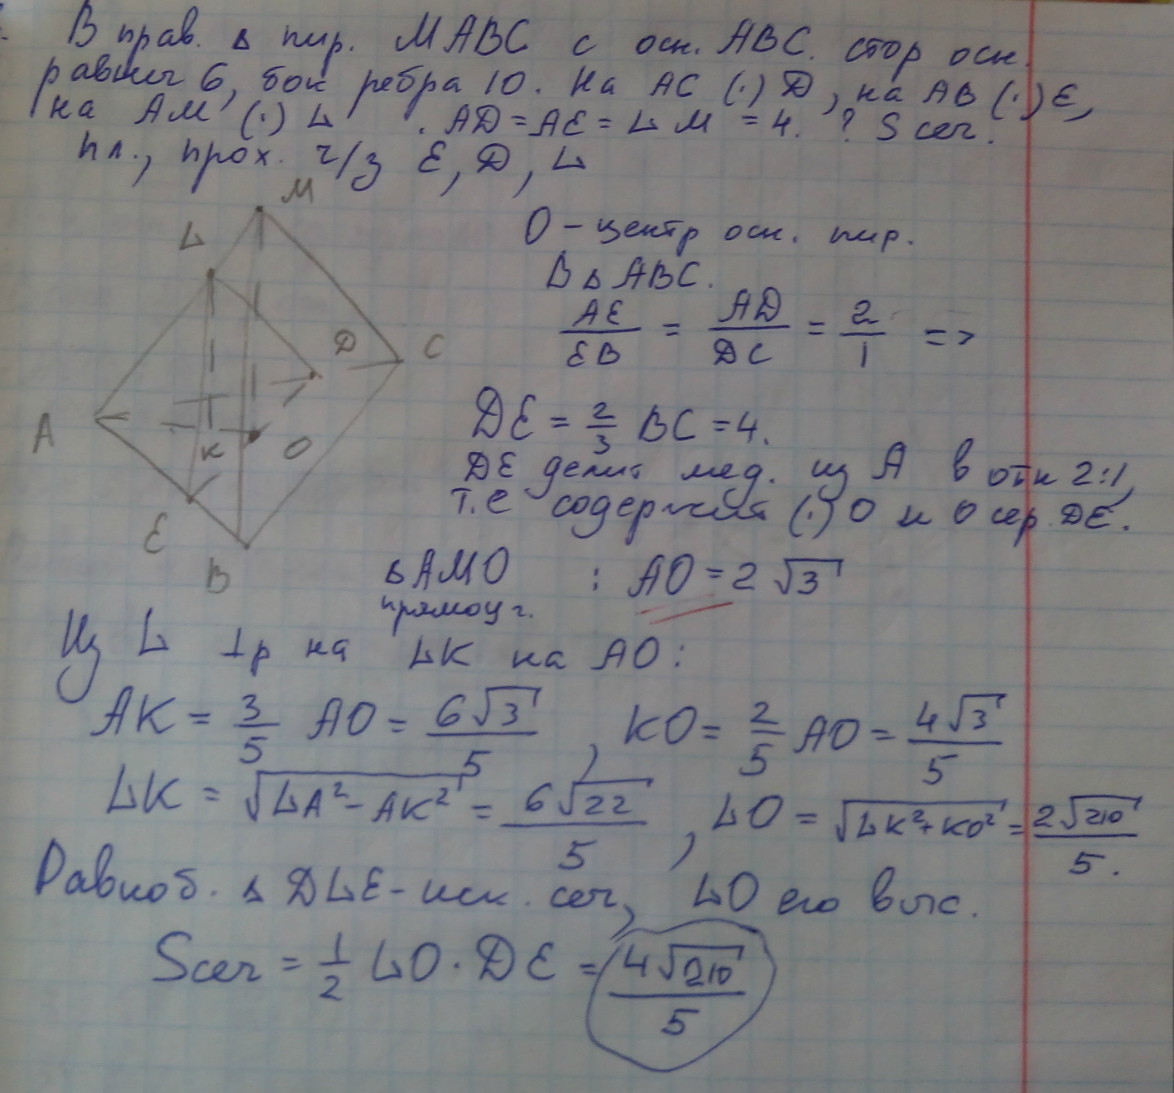 В прав. Δ пир. МАВС с осн. АВС. стор осн.
равны 6, бок ребра 10. На АС (·) D, на АВ (·) Е,
на АМ (·) L . AD = AE = LM = 4. ? S сеч.
пл., прох. ч/з E, D, L
M
L
D
C
A
K
O
E
B
O – центр осн. пир.
В Δ АВС.
AE/EB = AD/DC = 2/1 =>
DE = 2/3 BC = 4.
DE делит мед. из А в отн 2:1,
т.е содержит (·) О и О сер. DE.
Δ AMO : AO = 2√3
прямоуг.
Из L ⊥р на LK на АО:
AK = 3/5 AO = 6√3/5 , KO = 2/5 AO = 4√3/5
LK = √(LA² - AK²) = 6√22/5 , LO = √(LK² + KO²) = 2√210/5.
Равноб. Δ DLE - иск. сеч, LO его выс.
Sсеч = 1/2 LO · DE = 4√210/5